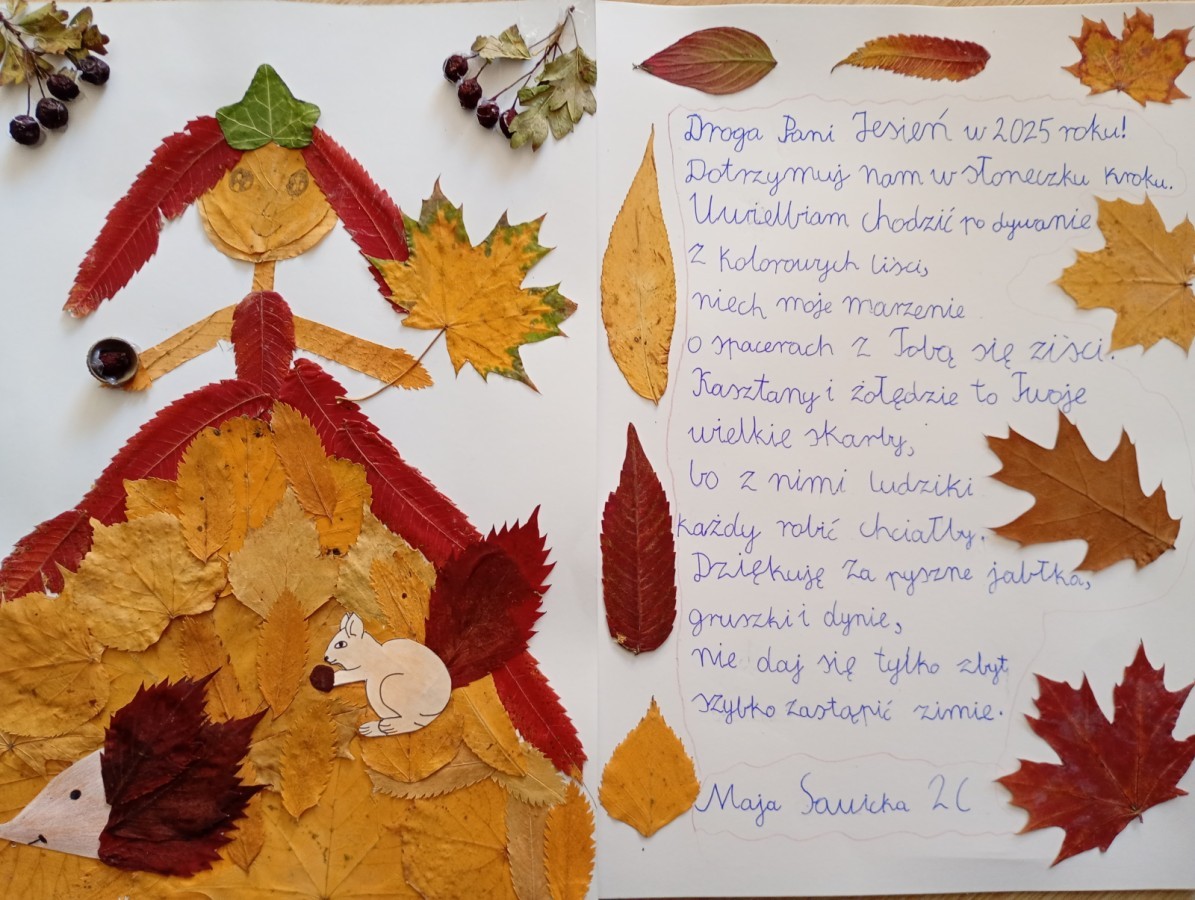 Droga Pani Jesień w 2025 roku!
Dotrzymuj nam w słoneczku kroku.
Uwielbiam chodzić po dywanie
z kolorowych liści,
niech moje marzenie
o spacerach z Tobą się ziści.
Kasztany i żołędzie to Twoje
wielkie skarby,
bo z nimi ludziki
każdy robić chciałby.
Dziękuję za pyszne jabłka,
gruszki i dynie,
nie daj się tylko zbyt
szybko zastąpić zimie.
Maja Sawicka 2C